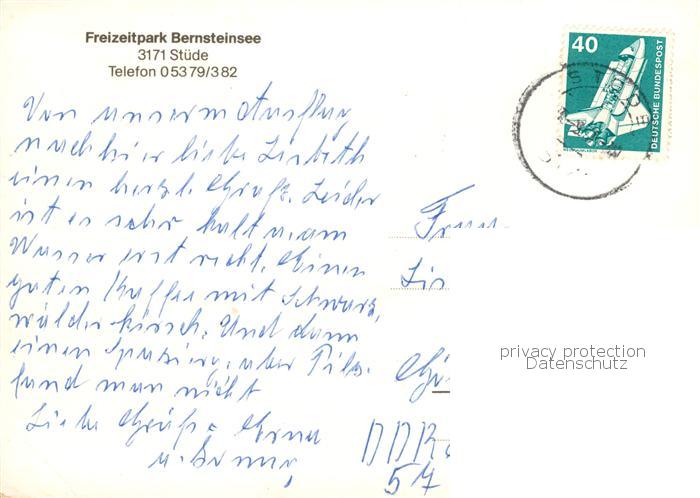 Freizeitpark Bernsteinsee
3171 Stüde
Telefon 0 53 79/3 82
40
DEUTSCHE BUNDESPOST
Von unserm Ausflug
nach hier liebe Lisbeth
einen herzl. Gruß. Leider
ist es sehr kalt u. am
Wasser erst recht. Einen
guten Kaffee mit Schwarz-
wälderkirsch. Und dann
einen Spazierg. aber Pilz.
fand man nicht
Liebe Grüße Erna
u.
Frau
Lis
DDR
57
privacy protection
Datenschutz